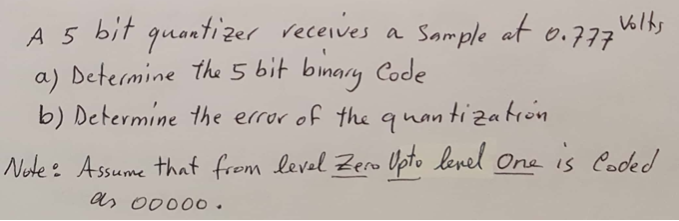 A 5 bit quantizer receives a Sample at 0.777 Volts
a) Determine the 5 bit binary Code
b) Determine the error of the quantization
Note: Assume that from level Zero Upto level One is Coded
as 00000.